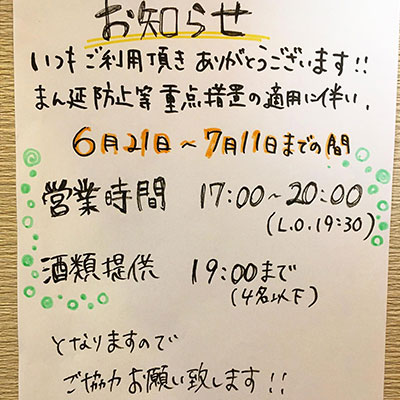 お知らせ
いつもご利用頂きありがとうございます!!
まん延防止等重点措置の適用に伴い、
6月21日～7月11日までの間
営業時間 17:00～20:00
(L.O.19:30)
酒類提供 19:00まで
(4名以下)
となりますので
ご協力お願い致します!!